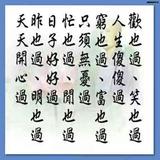 歡也過、笑也過
人生傻傻過
窮也過、富也過
只須無憂過
忙也過、閒也過
日子好好過
昨也過、明也過
天天開心過